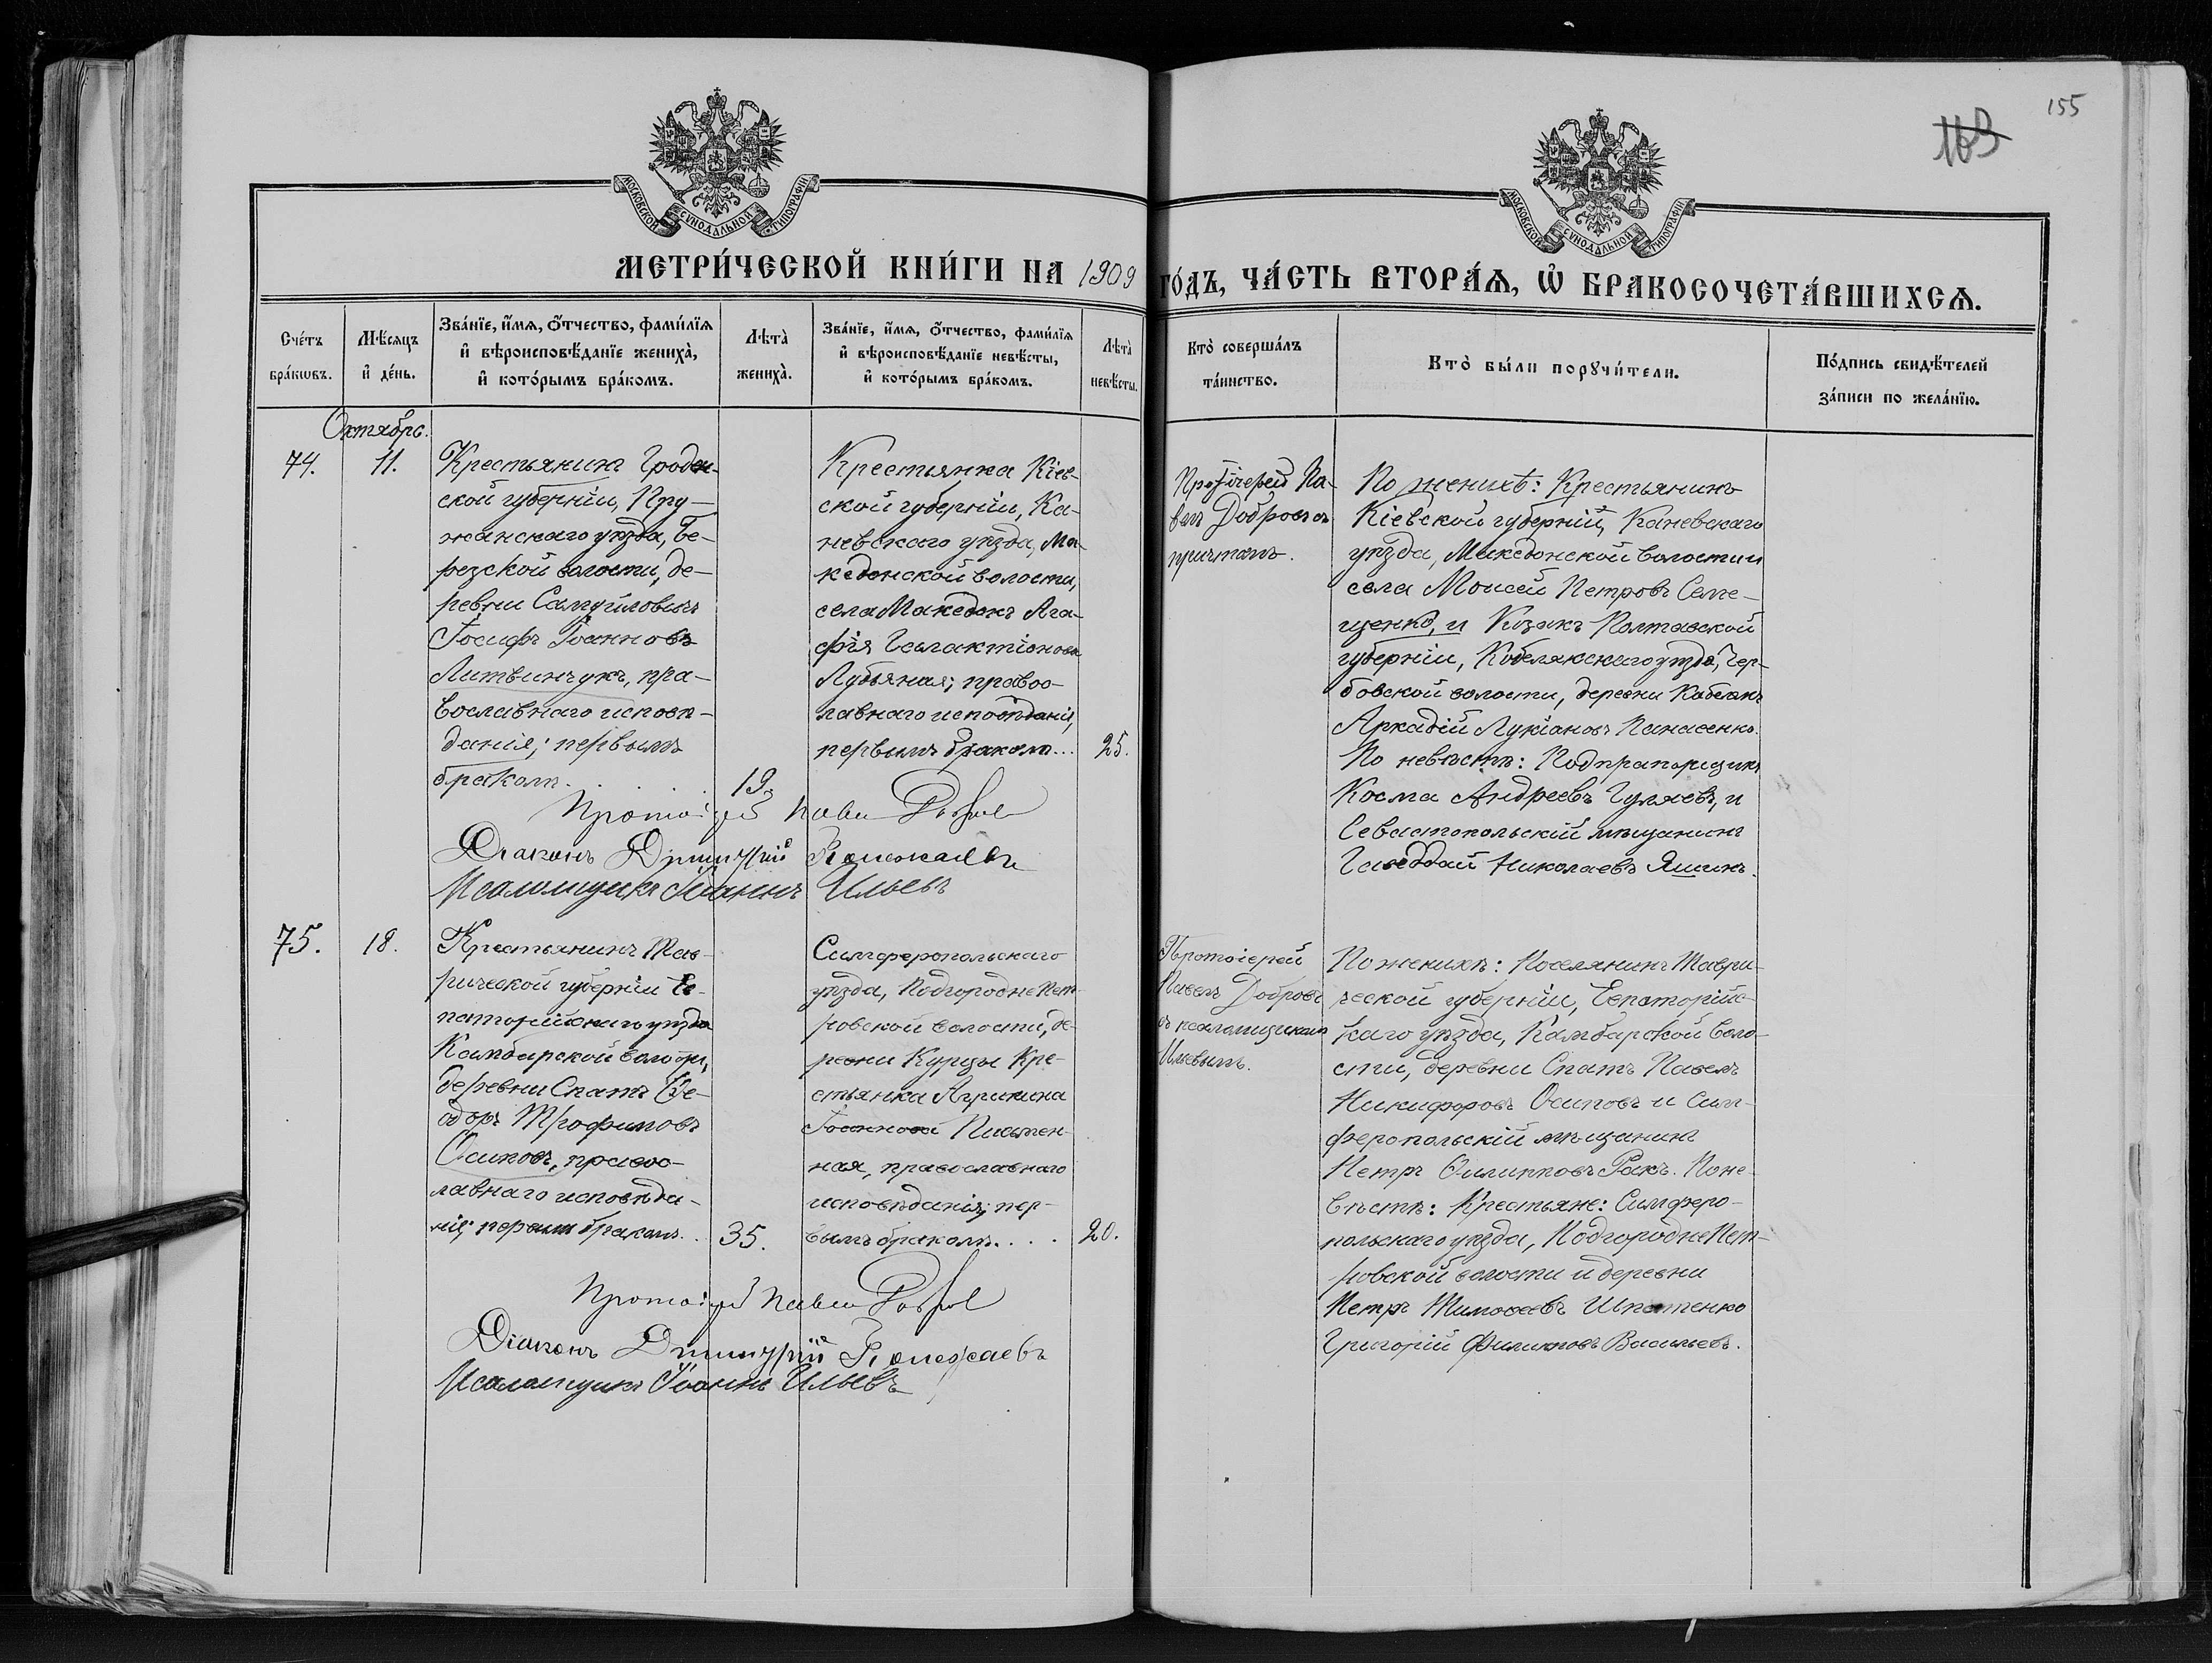 155
163
МОСКОВСКОЙ СѴНОДАЛЬНОЙ ТИПОГРАФІИ
МОСКОВСКОЙ СѴНОДАЛЬНОЙ ТИПОГРАФІИ
МЕТРИ́ЧЕСКОЙ КНИ́ГИ НА 1909 ГО́ДЪ, ЧА́СТЬ ВТОРА́Ѧ, Ѡ҆ БРАКОСОЧЕТА́ВШИХСѦ.
Сче́тъ
бра́кѡвъ.
Мѣ́сяцъ
и҆ де́нь.
Зва́нїе, и҆́мѧ, ѻ҆́тчество, фами́лїѧ
и҆ вѣроисповѣ́данїе жениха̀,
и҆ кото́рымъ бра́комъ.
Лѣта̀
жениха̀.
Зва́нїе, и҆́мѧ, ѻ҆́тчество, фами́лїѧ
и҆ вѣроисповѣ́данїе невѣ́сты,
и҆ кото́рымъ бра́комъ.
Лѣта̀
невѣ́сты.
Кто̀ соверша́лъ
та́инство.
Кто̀ бы́ли порꙋчи́тели.
По́дпись свидѣ́телей
за́писи по жела́нїю.
Октябрь.
74.
11.
Крестьянинъ Гроден-
ской губерніи, Пру-
жанскаго уѣзда, Бе-
резской волости, де-
ревни Самуйловичъ
Іосифъ Іоанновъ
Литвинчукъ, пра-
вославнаго исповѣ-
данія; первымъ
бракомъ.
19.
Крестьянка Кіев-
ской губерніи, Ка-
невскаго уѣзда, Ма-
кедонской волости,
села Македонъ Ага-
фія Галактіонова
Лубяная; правос-
лавнаго исповѣданія,
первымъ бракомъ...
25.
Протоіерей Павелъ Добровъ
Діаконъ Димитрій
Псаломщикъ Іоаннъ Ильевъ
Протоіерей Па-
велъ Добровъ съ
причтомъ.
По женихѣ: Крестьянинъ
Кіевской губерніи, Каневскаго
уѣзда, Македонской волости и
села Моисей Петровъ Семе-
щенко, и Козакъ Полтавской
губерніи, Кобелякскаго уѣзда,
волости, деревни
Аркадій Лукіановъ Панасенко.
По невѣстѣ: Подпрапорщикъ
Косма Андреевъ Гуляевъ, и
Севастопольскій мѣщанинъ
Николаевъ Яшинъ.
75.
18.
Крестьянинъ Тав-
рической губерніи Ев-
паторійскаго уѣзда
Камбарской волости,
деревни Спатъ Ѳе-
одоръ Трофимовъ
Осиповъ, правос-
лавнаго исповѣда-
нія; первымъ бракомъ..
35.
Симферопольскаго
уѣзда, Подгородне Пет-
ровской волости, де-
ревни Курцы Кре-
стьянка Агрипина
Іоаннова Писмен-
ная, православнаго
исповѣданія; пер-
вымъ бракомъ....
20.
Протоіерей Павелъ Добровъ
Діаконъ Димитрій
Псаломщикъ Іоаннъ Ильевъ
Протоіерей
Павелъ Добровъ
съ псаломщикомъ
Ильевымъ.
По женихѣ: Поселянинъ Таври-
ческой губерніи, Евпаторійс-
каго уѣзда, Камбарской воло-
сти, деревни Спатъ Павелъ
Никифоровъ Осиповъ и Сим-
феропольскій мѣщанинъ
Петръ Филипповъ Ракъ. По не-
вѣстѣ: Крестьяне: Симферо-
польскаго уѣзда, Подгородне Пет-
ровской волости и деревни
Петръ Тимоѳеевъ Ипатенко
Григорій Филиповъ Васильевъ.